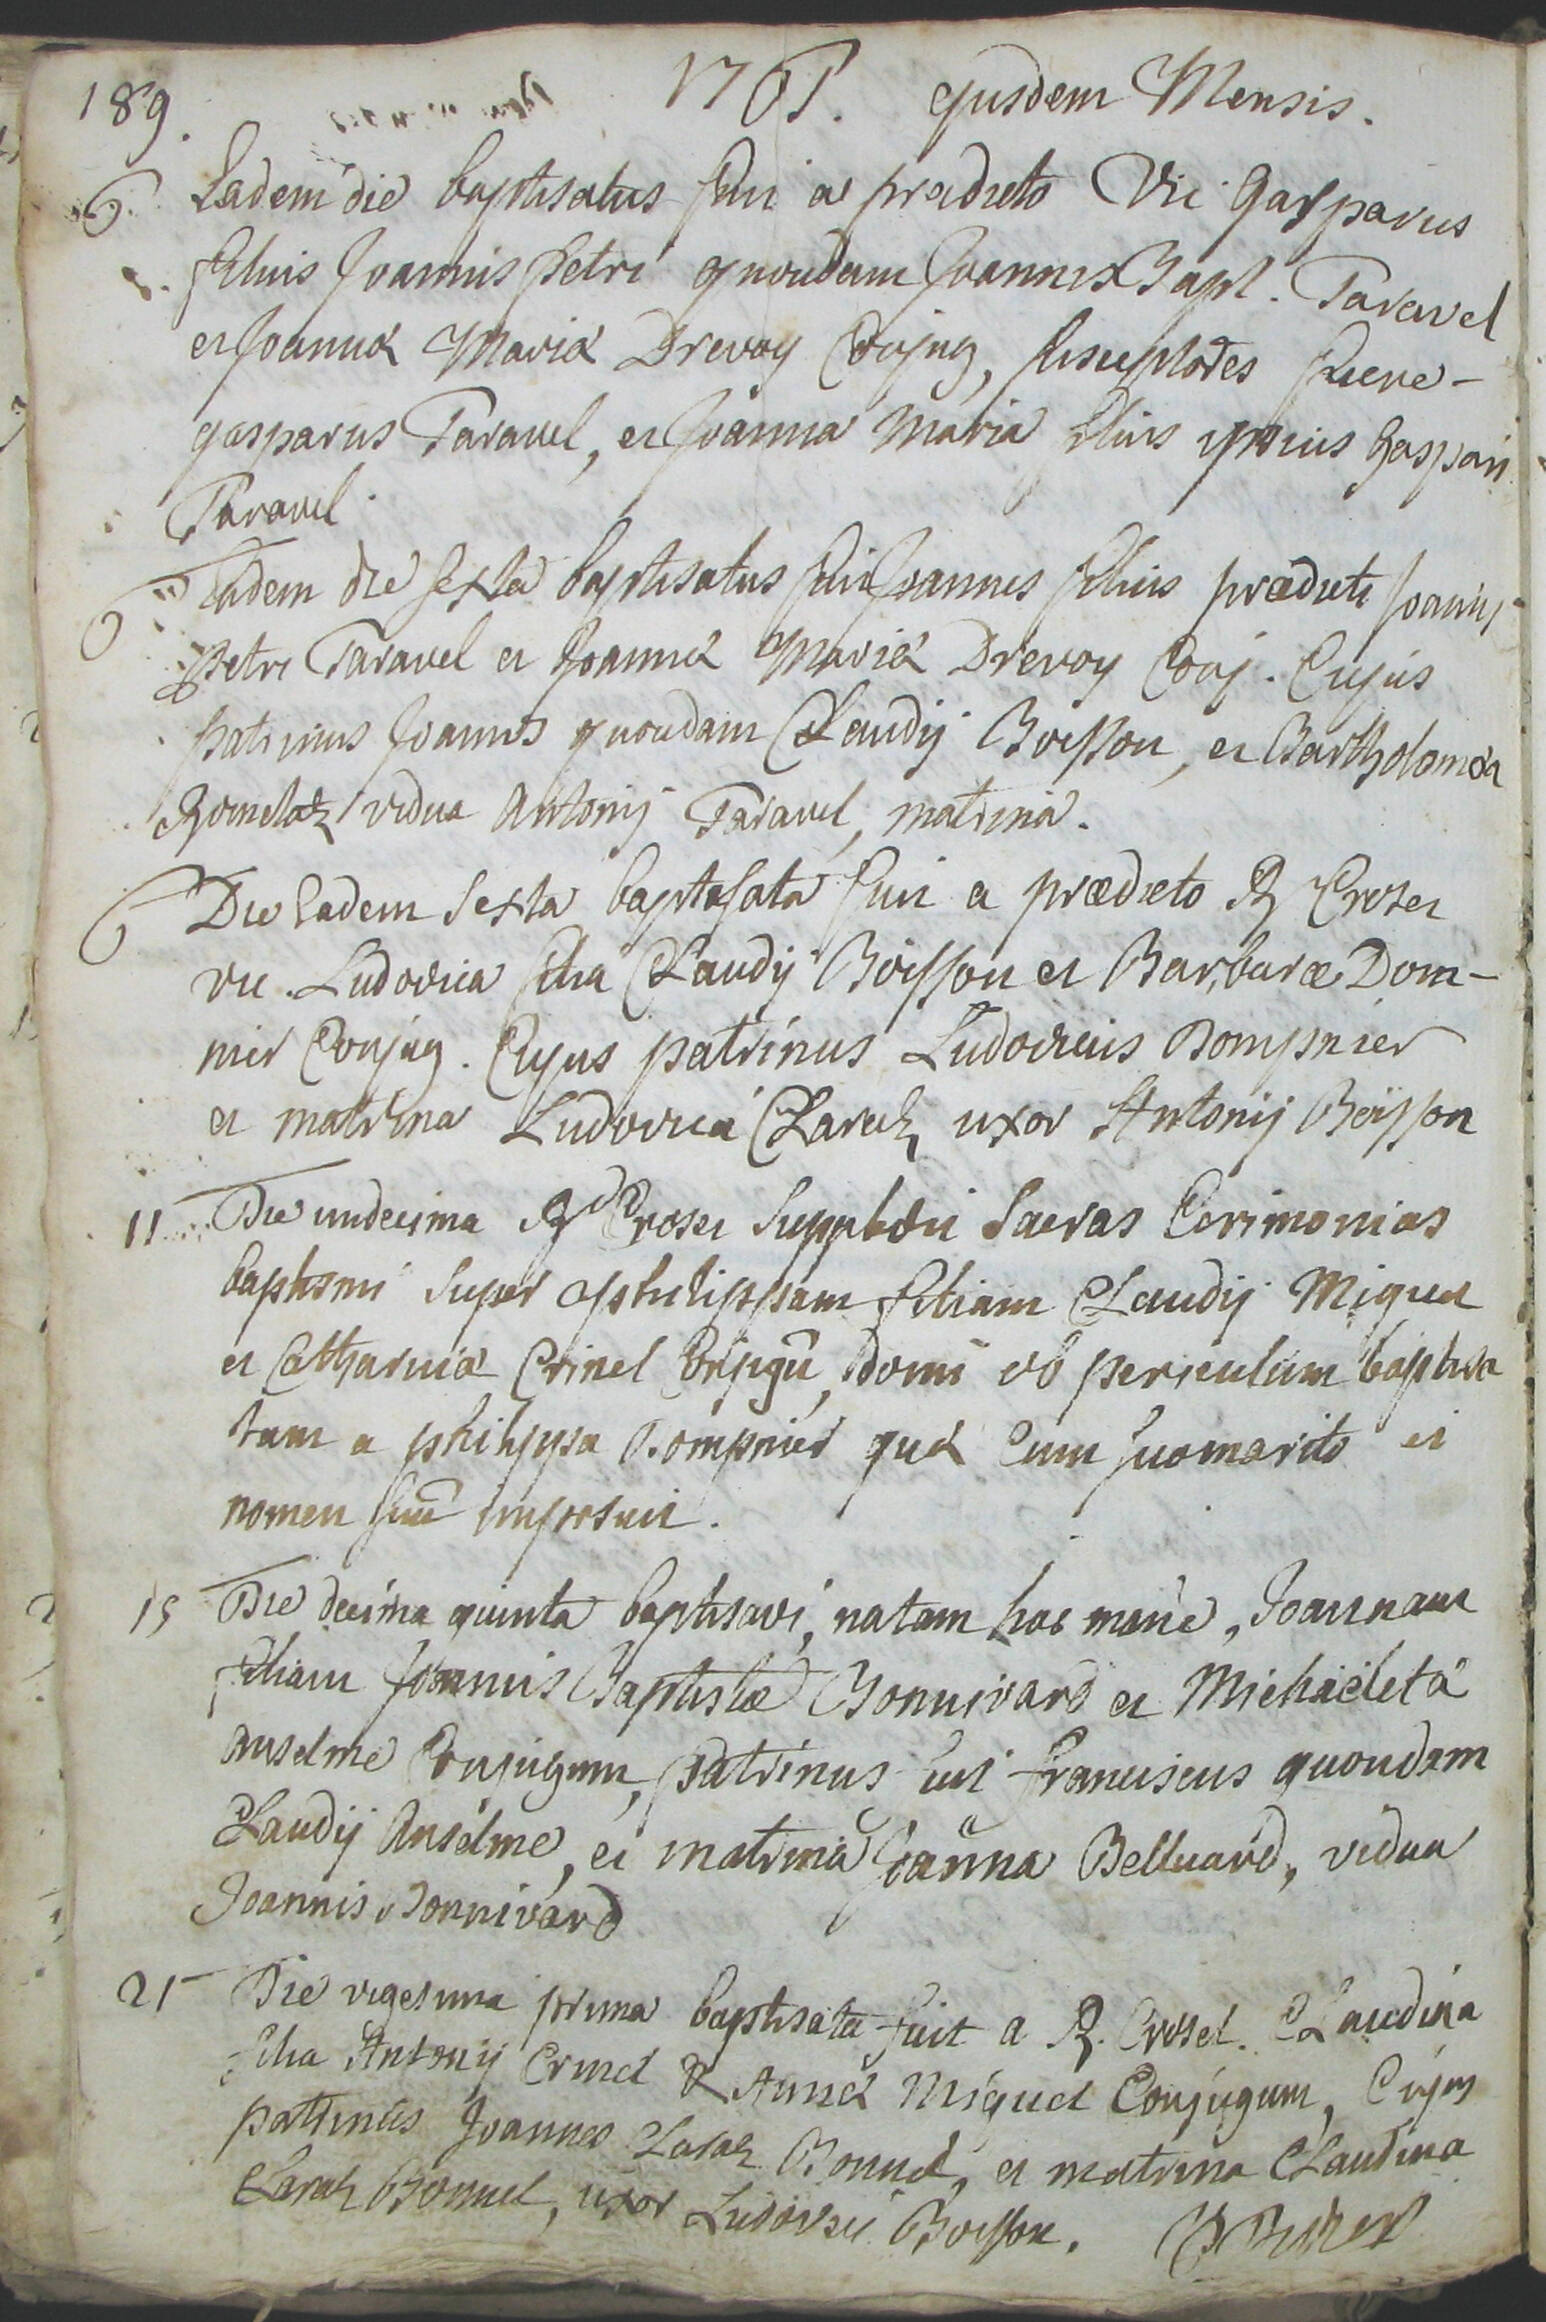 189. 1701. ejusdem Mensis.
6 Eadem die baptisatus fuit a prædicto Vic. Gasparus
filius Joannis Petri quondam Joannis Bapt. Taravel
et Joannæ Mariæ Drevoy Conjug, susceptores fuere
gasparus Taravel, et Joanna Maria filius ipsius Gaspari
Taravel.
6 Eadem die sexta baptisatus fuit Joannes filius prædicti Joannis
Petri Taravel et Joannæ Mariæ Drevoy Conj. Cujus
patrinus Joannes quondam Claudij Boisson, et Bartholomea
vidua Antonij Taravel, matrina.
6 Die Eadem Sexta baptisata fuit a prædicto R Croset
vic. Ludovica filia Claudij Boisson et Barbaræ Dom-
nier Conjug. Cujus patrinus Ludovicus Dompnier
et matrina Ludovica Claraz uxor Antonij Boisson
11 Die undecima Rd Croset Supplevit Sacras Cerimonias
baptismi super philippam filiam Claudij Miquet
et Catharinæ Crinel Conjugū, domi ob periculum baptisa
tam a philippa Dompnier quæ cum suo marito ei
nomen suū imposuit.
15 Die decima quinta baptisavi, natam hoc mane, Joannam
filiam Joannis Baptistæ Bonnivard et Michaëletæ
Anselme Conjugum, patrinus fuit Franciscus quondam
Claudij Anselme, et matrina Joanna Belluard, vidua
Joannis Bonnivard
21 Die vigesima prima baptisata fuit a R. Croset. Claudina
filia Antonij Crinel & Annæ Miquet Conjugum, Cujus
patrinus Joannes Claraz Bonnel, et matrina Claudina
Claraz Bonnel, uxor Ludovici Boisson.